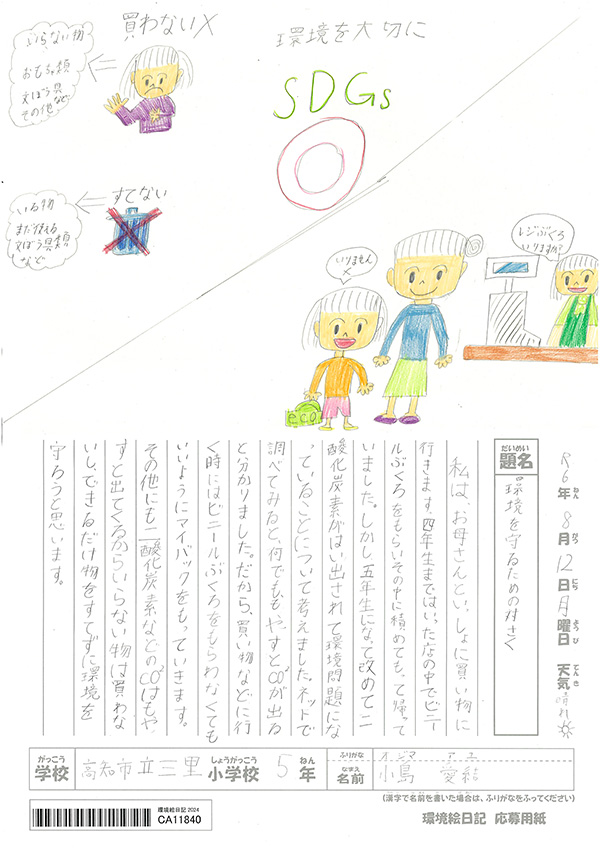 買わない×
いらない物
おもちゃ類
文ぼう具
その他など
環境を大切に
SDGs
すてない
いる物
まだ使える
文ぼう具類
など
レジぶくろ
いりますか?
いりません
×
eco
R6年 8月 12日 月曜日 天気 晴れ
ねん がつ にち ようび てんき
だいめい
題名
環境を守るための対さく
私は、お母さんといっしょに買い物に
行きます。四年生まではいった店の中でビニー
ルぶくろをもらいその中に積めてもって帰って
いました。しかし五年生になって改めて二
酸化炭素がはい出されて環境問題にな
っていることについて考えました。ネットで
調べてみると、何でももやすとCO²が出る
と分かりました。だから、買い物などに行
く時にはビニールぶくろをもらわなくても
いいようにマイバックをもっていきます。
その他にも二酸化炭素などのCO²はもや
すと出てくるからいらない物は買わな
いし、できるだけ物をすてずに環境を
守ろうと思います。
がっこう しょうがっこう ねん
学校 高知市立三里 小学校 5年
ふりがな オジマ アユ
なまえ
名前 小島 愛結
(漢字で名前を書いた場合は、ふりがなをふってください)
環境絵日記 2024
CA11840
環境絵日記 応募用紙